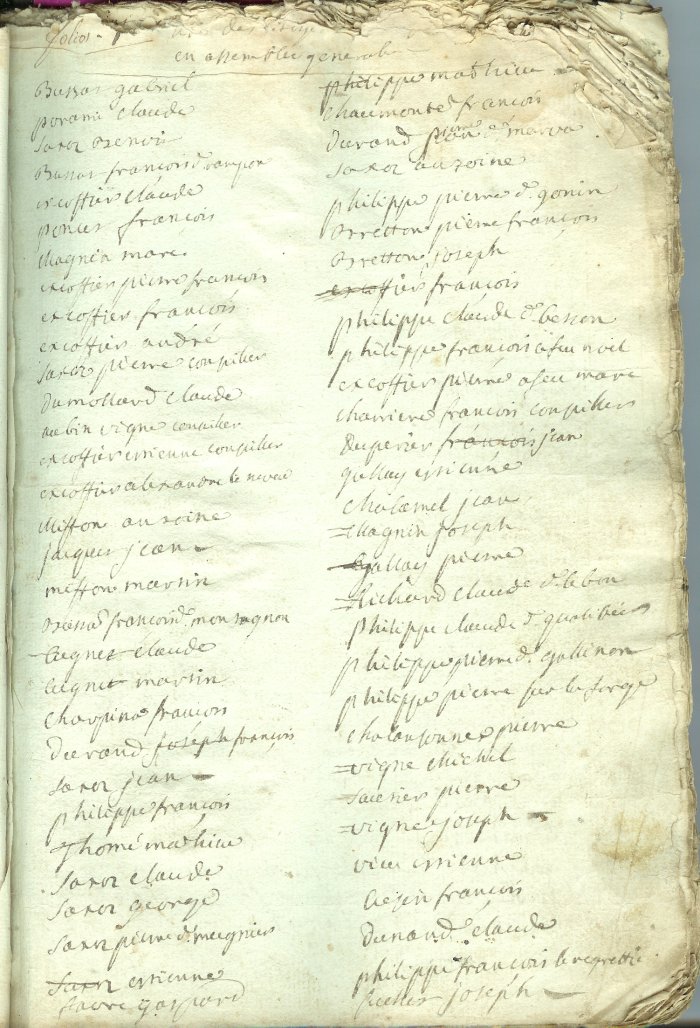 folios
en assemblee generale
Bussat gabriel
porami claude
saroz benoit
Bussat francois d. rampon
excoffier claude
poncet francois
Magnin marc
excoffier pierre francois
excoffier francois
excoffier andré
saroz pierre conseiller
Dumollard claude
aubin vigne conseiller
excoffier estienne conseiller
excoffier alexandre le neveu
Miffon antoine
jacques jean
meffon martin
francois d. mon mignon
claude
martin
Charpine francois
Durand joseph francois
saroz jean
philippe francois
Thomé mathieu
saroz claude
saroz george
saroz pierre d. meignier
saroz estienne
favre gaspard
philippe mathieu
chaumonted francois
durand pierre d. marva
saroz antoine
philippe pierre d. gonin
Bretton pierre francois
Bretton joseph
excoffier francois
philippe claude d. besson
philippe francois à feu noel
excoffier pierre à feu marc
charriere francois conseiller
duperier francois jean
gallay estienne
chatamel jean
Magnin joseph
gallay pierre
Richard claude d. le bon
philippe claude d.
philippe pierre d. gallinon
philippe pierre sur la forge
chalansonnet pierre
vigne michel
pierre
vigne joseph
estienne
francois
Dunand claude
philippe francois
joseph